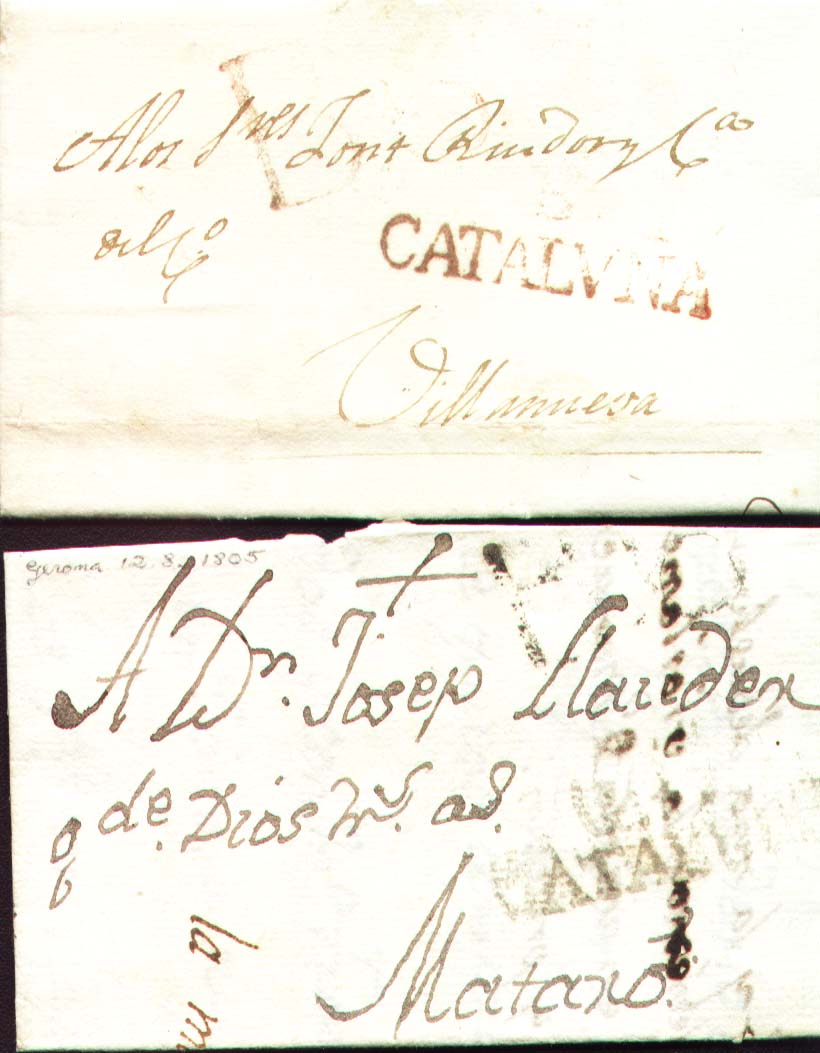 A los Sres Font Riudor y Ca
del Co
B
CATALVÑA
Villanueva
Gerona 12.8.1805
A Dn. Josep Llauder
g de. Dios ms. as.
CATALUÑA
Mataro.
la m